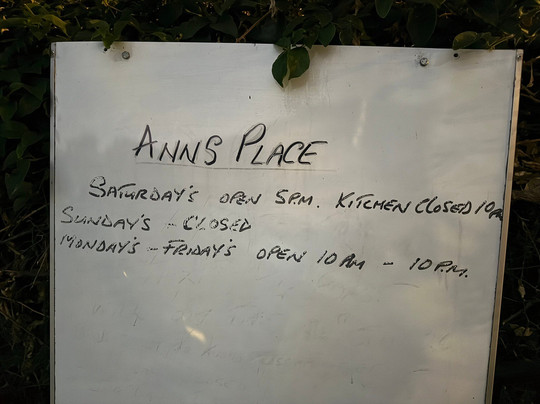 ANNS PLACE
SATURDAY'S OPEN 5PM. KITCHEN CLOSED 10PM
SUNDAY'S - CLOSED
MONDAY'S - FRIDAY'S OPEN 10AM - 10P.M.